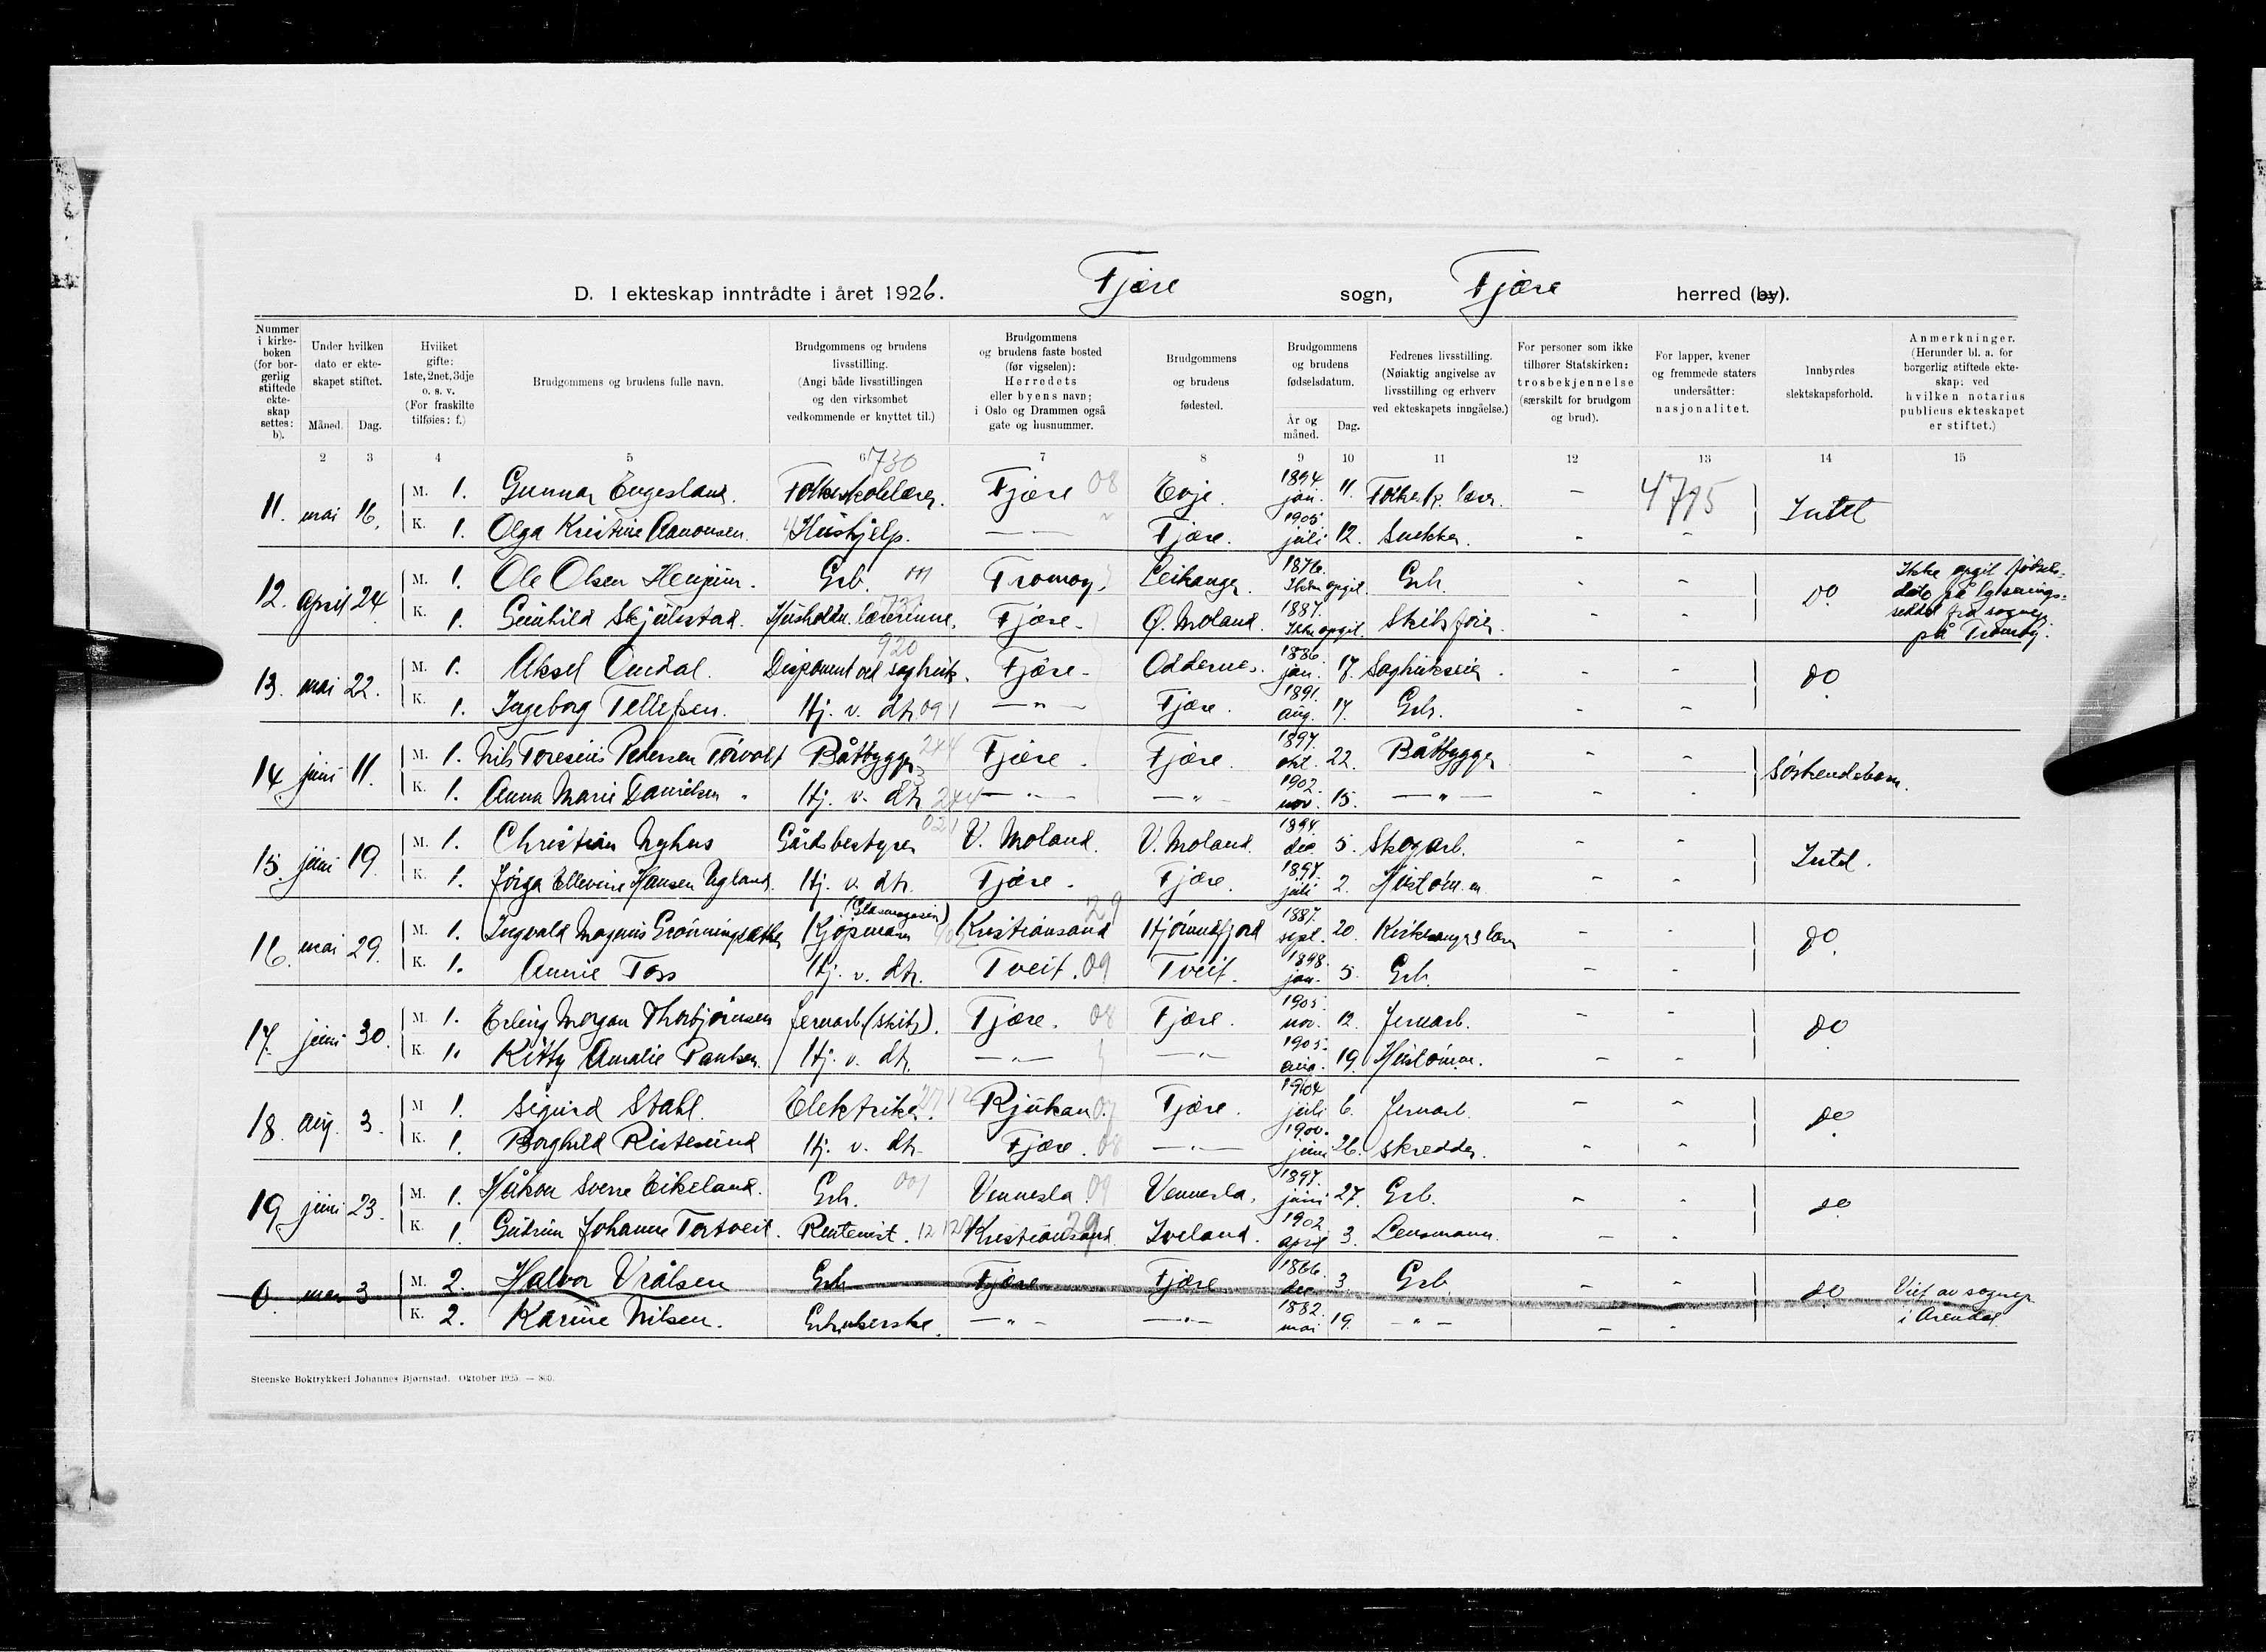 D. I ekteskap inntrådte i året 1926. Fjære sogn, Fjære herred (by).
Nummer i kirkeboken (for borgerlig stiftede ekteskap settes: b).
Under hvilken dato er ekteskapet stiftet.
Måned. Dag.
Hvilket gifte: 1ste, 2net, 3dje o. s. v. (For fraskilte tilføies: f.)
Brudgommens og brudens fulle navn.
Brudgommens og brudens livsstilling. (Angi både livsstillingen og den virksomhet vedkommende er knyttet til.)
Brudgommens og brudens faste bosted (før vigselen): Herredets eller byens navn; i Oslo og Drammen også gate og husnummer.
Brudgommens og brudens fødested.
Brudgommens og brudens fødselsdatum.
År og måned. Dag.
Fedrenes livsstilling. (Nøiaktig angivelse av livsstilling og erhverv ved ekteskapets inngåelse.)
For personer som ikke tilhører Statskirken: trosbekjennelse (særskilt for brudgom og brud).
For lapper, kvener og fremmede staters undersåtter: nasjonalitet.
Innbyrdes slektskapsforhold.
Anmerkninger. (Herunder bl. a. for borgerlig stiftede ekteskap: ved hvilken notarius publicus ekteskapet er stiftet.)
2 3 4 5 6 7 8 9 10 11 12 13 14 15
730
11. mai 16. M. 1. Gunnar Engesland. Folkeskolelærer. Fjære 08 Evje. 1894 jan. 11. Folkesk. lær. - 4795 Intet
K. 1. Olga Kristine Aanonsen. Hushjelp. - " - Fjære. 1905 juli 12. Snekker. - -
12. April 24 M. 1. Ole Olsen Grb. Tromøy. Leikanger. 1876. Ikke opgit. Grb. - - do Ikke opgit fødsels=
dato på lysnings=
seddel fra sognep.
på Tromøy.
K. 1. Gunhild Skjulestad. Husholdn. lærerinne. Fjære. Ø. Moland. 1887. Ikke opgit. Skibsfører. - -
920
13. mai 22. M. 1. Aksel Omdal. Disponent ved sagbruk. Fjære. Oddernes. 1886. jan. 17. Sagbrukseier. - - do
K. 1. Ingeborg Tellefsen. Hj. v. dtr. 091 - " - Fjære. 1891. aug. 17. Grb. - -
14. juni 11. M. 1. Nils Teresius Pedersen Båtbygger 244 Fjære. Fjære. 1897. okt. 22. Båtbygger - - Søskendebarn.
K. 1. Anna Marie Danielsen. Hj. v. dtr. 244 - " - - " - 1902. nov. 15. - " - - -
15. juni 19. M. 1. Christian Nyhus Gårdsbestyrer 021 V. Moland. V. Moland. 1894. des. 5. Skogarb. - - Intet.
K. 1. Hansen Ugland. Hj. v. dtr. Fjære. Fjære. 1897. juli 2. - -
16. mai 29. M. 1. Ingvald Magnus Grønningsæter Kjøpmann (Glasmagasin) Kristiansand 29 Hjørundfjord 1887. sept. 20. Kirkesanger & lærer - - do
K. 1. Annie Foss Hj. v. dtr. Tveit. 09 Tveit. 1898. jan. 5. Grb. - -
17. juni 30. M. 1. Erling Morgan Thorbjørnsen Jernarb. (skibs). Fjære. 08 Fjære. 1905 nov. 12. Jernarb. - - do
K. 1. Kitty Amalie Paulsen. Hj. v. dtr. - " - - " - 1905. aug. 19. - -
18. aug. 3. M. 1. Sigurd Stahl. Elektriker. Rjukan 07 Fjære. 1904 juli 6. Jernarb. - - do
K. 1. Borghild Ristesund Hj. v. dtr. Fjære. 08 - " - 1900. juni 26. Skredder. - -
19 juni 23. M. 1. Håkon Sverre Eikeland. Grb. 001 Vennesla 09 Vennesla. 1897. juni 27. Grb. - - do
K. 1. Gudrun Johanne Tortveit. Kristiansand. 29 Iveland. 1902 april 3. Lensmann. - -
0. mars 3 M. 2. Halvor Vrålsen Grb Fjære Fjære 1866. des. 3. Grb. - - do Viet av sognepr.
i Arendal.
K. 2. Karine Nilsen. Grbrukerske. - " - - " - 1882. mai 19. - " - - -
Steenske Boktrykkeri Johannes Bjørnstad. Oktober 1925. — 800.